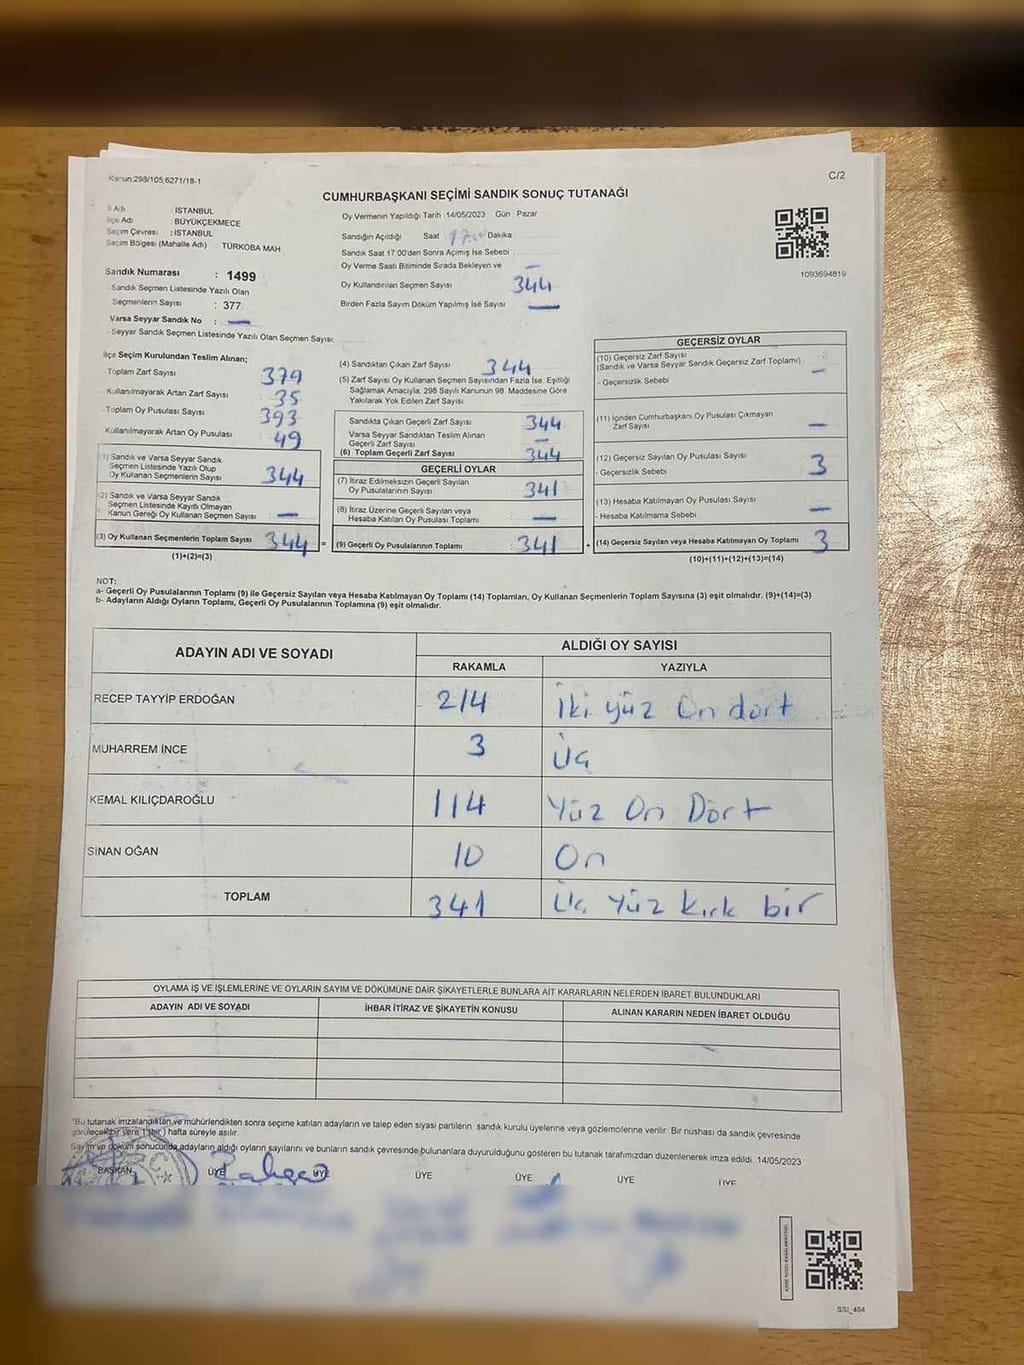 Kanun:298/105,6271/18-1
C/2
CUMHURBAŞKANI SEÇİMİ SANDIK SONUÇ TUTANAĞI
İl Adı : İSTANBUL
İlçe Adı : BÜYÜKÇEKMECE
Seçim Çevresi : İSTANBUL
Seçim Bölgesi (Mahalle Adı) : TÜRKOBA MAH
Sandık Numarası : 1499
Sandık Seçmen Listesinde Yazılı Olan
Seçmenlerin Sayısı : 377
Varsa Seyyar Sandık No : —
- Seyyar Sandık Seçmen Listesinde Yazılı Olan Seçmen Sayısı
Oy Vermenin Yapıldığı Tarih :14/05/2023 Gün : Pazar
Sandığın Açıldığı Saat Dakika
Sandık Saat 17:00'den Sonra Açımış İse Sebebi
Oy Verme Saati Bitiminde Sırada Bekleyen ve —
Oy Kullandırılan Seçmen Sayısı 344
Birden Fazla Sayım Döküm Yapılmış İse Sayısı —
1093694819
İlçe Seçim Kurulundan Teslim Alınan;
- Toplam Zarf Sayısı 379
- Kullanılmayarak Artan Zarf Sayısı 35
- Toplam Oy Pusulası Sayısı 393
Kullanılmayarak Artan Oy Pusulası 49
(1) Sandık ve Varsa Seyyar Sandık
Seçmen Listesinde Yazılı Olup
Oy Kullanan Seçmenlerin Sayısı 344
(2) Sandık ve Varsa Seyyar Sandık
Seçmen Listesinde Kayıtlı Olmayan
Kanun Gereği Oy Kullanan Seçmen Sayısı —
(3) Oy Kullanan Seçmenlerin Toplam Sayısı 344 =
(1)+(2)=(3)
(4) Sandıktan Çıkan Zarf Sayısı 344
(5) Zarf Sayısı Oy Kullanan Seçmen Sayısından Fazla İse, Eşitliği
Sağlamak Amacıyla, 298 Sayılı Kanunun 98. Maddesine Göre
Yakılarak Yok Edilen Zarf Sayısı
Sandıkta Çıkan Geçerli Zarf Sayısı 344
Varsa Seyyar Sandıktan Teslim Alınan
Geçerli Zarf Sayısı —
(6) Toplam Geçerli Zarf Sayısı 344
GEÇERLİ OYLAR
(7) İtiraz Edilmeksizin Geçerli Sayılan
Oy Pusulalarının Sayısı 341
(8) İtiraz Üzerine Geçerli Sayılan veya
Hesaba Katılan Oy Pusulası Toplamı —
(9) Geçerli Oy Pusulalarının Toplamı 341 +
GEÇERSİZ OYLAR
(10) Geçersiz Zarf Sayısı
(Sandık ve Varsa Seyyar Sandık Geçersiz Zarf Toplamı) —
- Geçersizlik Sebebi
(11) İçinden Cumhurbaşkanı Oy Pusulası Çıkmayan
Zarf Sayısı —
(12) Geçersiz Sayılan Oy Pusulası Sayısı 3
- Geçersizlik Sebebi
(13) Hesaba Katılmayan Oy Pusulası Sayısı —
- Hesaba Katılmama Sebebi
(14) Geçersiz Sayılan veya Hesaba Katılmayan Oy Toplamı 3
(10)+(11)+(12)+(13)=(14)
NOT:
a- Geçerli Oy Pusulalarının Toplamı (9) ile Geçersiz Sayılan veya Hesaba Katılmayan Oy Toplamı (14) Toplamları, Oy Kullanan Seçmenlerin Toplam Sayısına (3) eşit olmalıdır. (9)+(14)=(3)
b- Adayların Aldığı Oyların Toplamı, Geçerli Oy Pusulalarının Toplamına (9) eşit olmalıdır.
ADAYIN ADI VE SOYADI ALDIĞI OY SAYISI
RAKAMLA YAZIYLA
RECEP TAYYİP ERDOĞAN 214 İki yüz On dört
MUHARREM İNCE 3 Üç
KEMAL KILIÇDAROĞLU 114 Yüz On Dört
SİNAN OĞAN 10 On
TOPLAM 341 Üç Yüz kırk bir
OYLAMA İŞ VE İŞLEMLERİNE VE OYLARIN SAYIM VE DÖKÜMÜNE DAİR ŞİKAYETLERLE BUNLARA AİT KARARLARIN NELERDEN İBARET BULUNDUKLARI
ADAYIN ADI VE SOYADI İHBAR İTİRAZ VE ŞİKAYETİN KONUSU ALINAN KARARIN NEDEN İBARET OLDUĞU
"Bu tutanak imzalandıktan ve mühürlendikten sonra seçime katılan adayların ve talep eden siyasi partilerin sandık kurulu üyelerine veya gözlemcilerine verilir. Bir nüshası da sandık çevresinde
görülecek bir yere 1 (bir) hafta süreyle asılır.
Sayım ve döküm sonucunda adayların aldığı oyların sayılarını ve bunların sandık çevresinde bulunanlara duyurulduğunu gösteren bu tutanak tarafımızdan düzenlenerek imza edildi. 14/05/2023
BAŞKAN ÜYE ÜYE ÜYE ÜYE ÜYE ÜYE
SSI_404